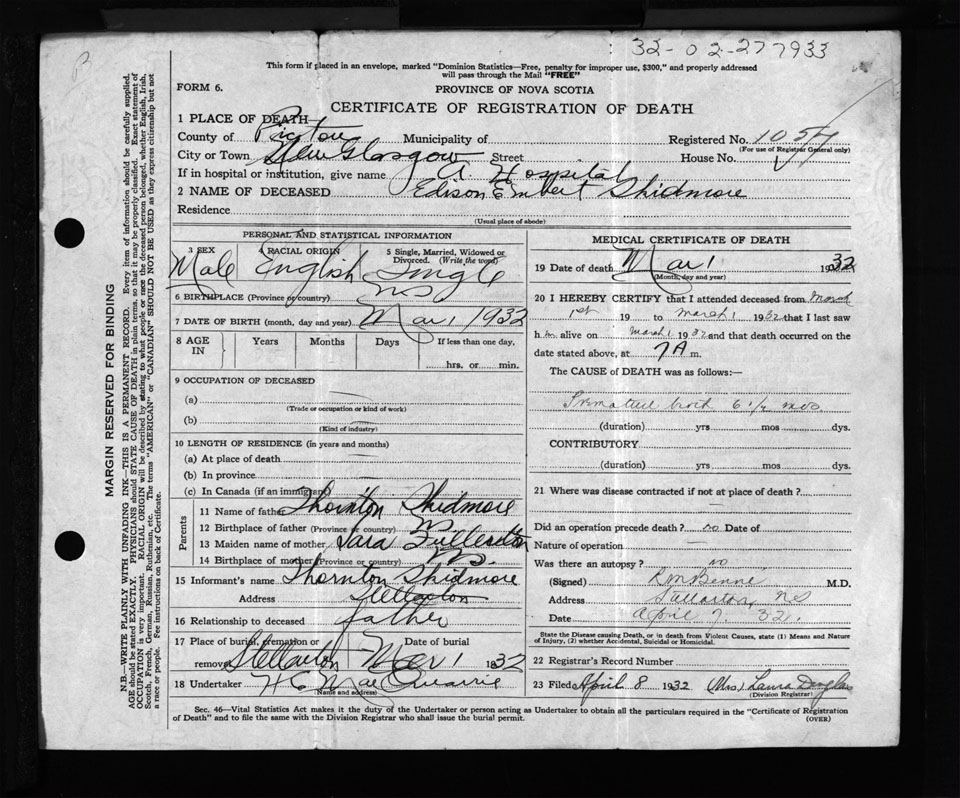 32-02-277933
This form if placed in an envelope, marked "Dominion Statistics—Free, penalty for improper use, $300," and properly addressed
will pass through the Mail "FREE"
FORM 6.
PROVINCE OF NOVA SCOTIA
CERTIFICATE OF REGISTRATION OF DEATH
1 PLACE OF DEATH—
County of Pictou Municipality of Registered No. 1054
(For use of Registrar General only)
City or Town New Glasgow Street House No.
If in hospital or institution, give name A. Hospital
2 NAME OF DECEASED Edison Embert Skidmore
Residence
(Usual place of abode)
PERSONAL AND STATISTICAL INFORMATION
3 SEX RACIAL ORIGIN 5 Single, Married, Widowed or Divorced. (Write the word)
Male English Single
6 BIRTHPLACE (Province or country) NS
7 DATE OF BIRTH (month, day and year) Mar 1 1932
8 AGE IN Years Months Days If less than one day, hrs. or min.
9 OCCUPATION OF DECEASED
(a)
(Trade or occupation or kind of work)
(b)
(Kind of industry)
10 LENGTH OF RESIDENCE (in years and months)
(a) At place of death
(b) In province
(c) In Canada (if an immigrant)
Parents
11 Name of father Thornton Skidmore
12 Birthplace of father (Province or country) NS
13 Maiden name of mother Sara Fullerton
14 Birthplace of mother (Province or country) NS.
15 Informant's name Thornton Skidmore
Address Stellarton
16 Relationship to deceased father
17 Place of burial, cremation or removal Stellarton Date of burial Mar 1 1932
18 Undertaker H C MacQuarrie
(Name and address)
MEDICAL CERTIFICATE OF DEATH
19 Date of death Mar 1 1932
(Month, day and year)
20 I HEREBY CERTIFY that I attended deceased from March
1st 19 to March 1 1932 that I last saw
h im alive on March 1 1932 and that death occurred on the
date stated above, at 7 A m.
The CAUSE of DEATH was as follows:—
Premature birth 6 1/2 mos
(duration) yrs mos dys.
CONTRIBUTORY
(duration) yrs mos dys.
21 Where was disease contracted if not at place of death?
Did an operation precede death? no Date of
Nature of operation
Was there an autopsy? no
(Signed) M.D.
Address Stellarton, NS
Date April 7. 32.
State the Disease causing Death, or in death from Violent Causes, state (1) Means and Nature
of Injury, (2) whether Accidental, Suicidal or Homicidal.
22 Registrar's Record Number
23 Filed April 8 1932 (Mrs) Laura Douglas
(Division Registrar)
Sec. 46—Vital Statistics Act makes it the duty of the Undertaker or person acting as Undertaker to obtain all the particulars required in the "Certificate of Registration
of Death" and to file the same with the Division Registrar who shall issue the burial permit.
(OVER)
MARGIN RESERVED FOR BINDING
N.B.—WRITE PLAINLY WITH UNFADING INK—THIS IS A PERMANENT RECORD. Every item of information should be carefully supplied.
AGE should be stated EXACTLY. PHYSICIANS should STATE CAUSE OF DEATH in plain terms, so that it may be properly classified. Exact statement of
OCCUPATION is very important. RACIAL ORIGIN will be described by stating to what people or race the deceased person belonged, whether English, Irish,
Scotch, French, German, Russian, Ruthenian, etc. The terms "AMERICAN" or "CANADIAN" SHOULD NOT BE USED as they express citizenship but not
a race or people. Fee instructions on back of Certificate.